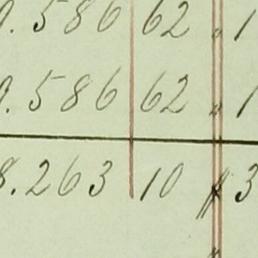 9.586 62 „ 1
9.586 62 „ 1
8.263 10 ƒ 3